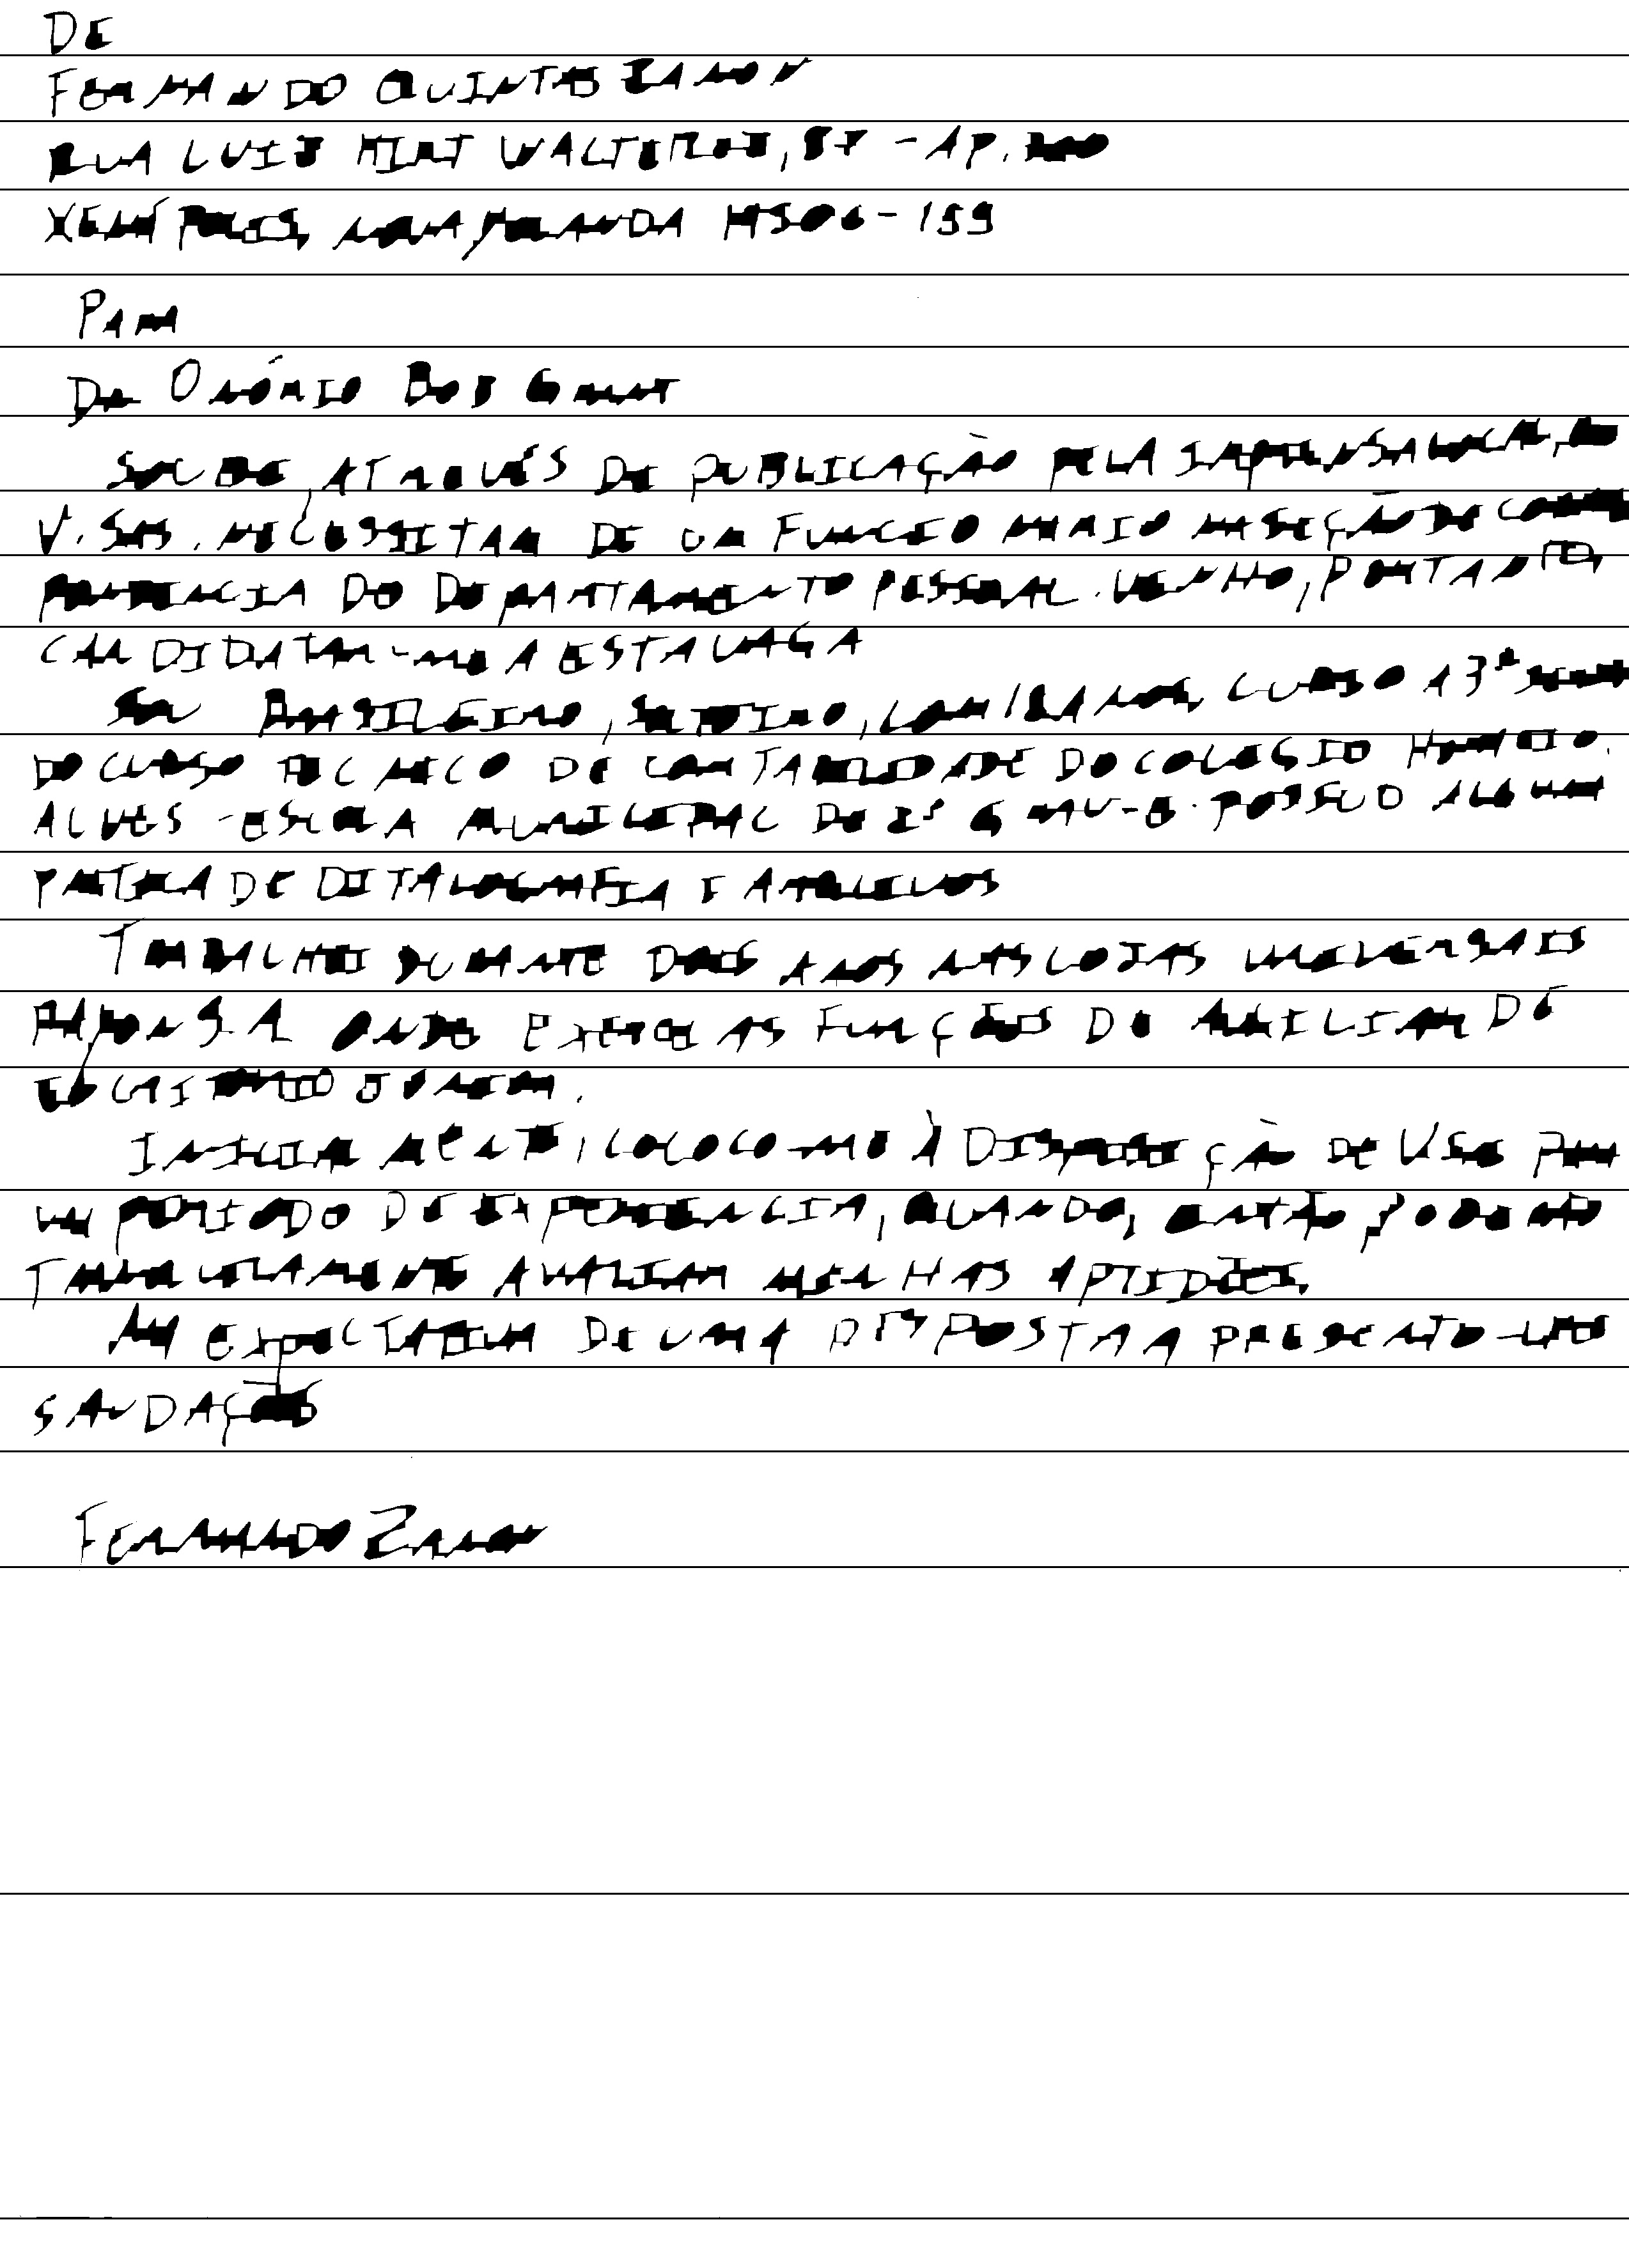 DE
FERNANDO QUINTAS ZANON
RUA LUIS WALTERS, 87 - AP.
XENÓPOLIS, HS06-159
PARA
DR ONÓRIO BOS
SOUBE, ATRAVÉS DE PUBLICAÇÃO PELA IMPRENSA LOCAL,
V. SAS. NECESSITAM DE UM FUNCIONARIO NA SEÇÃO DE
DO DEPARTAMENTO PESSOAL. VENHO, PORTANTO,
CANDIDATAR-ME A ESTA VAGA
SOU BRASILEIRO, SOLTEIRO, COM 18 ANOS, CURSO A 3ª SERIE
DO CURSO TECNICO DE CONTABILIDADE DO COLEGIO
ALVES - ESCOLA MUNICIPAL DE 2º GRAU - E POSSUO ALGUMA
PRATICA DE DATILOGRAFIA E ARQUIVOS
TRABALHEI DURANTE DOIS ANOS NAS LOJAS UNIVERSAIS
ONDE EXERCI AS FUNÇÕES DE AUXILIAR DE
INICIALMENTE, COLOCO-ME À DISPOSIÇÃO DE VSAS PARA
UM PERIODO DE EXPERIENCIA, QUANDO, ENTÃO, PODERÃO
AVALIAR MINHAS APTIDÕES.
NA EXPECTATIVA DE UMA RESPOSTA APRESENTO-LHES
SAUDAÇÕES
FERNANDO ZANON